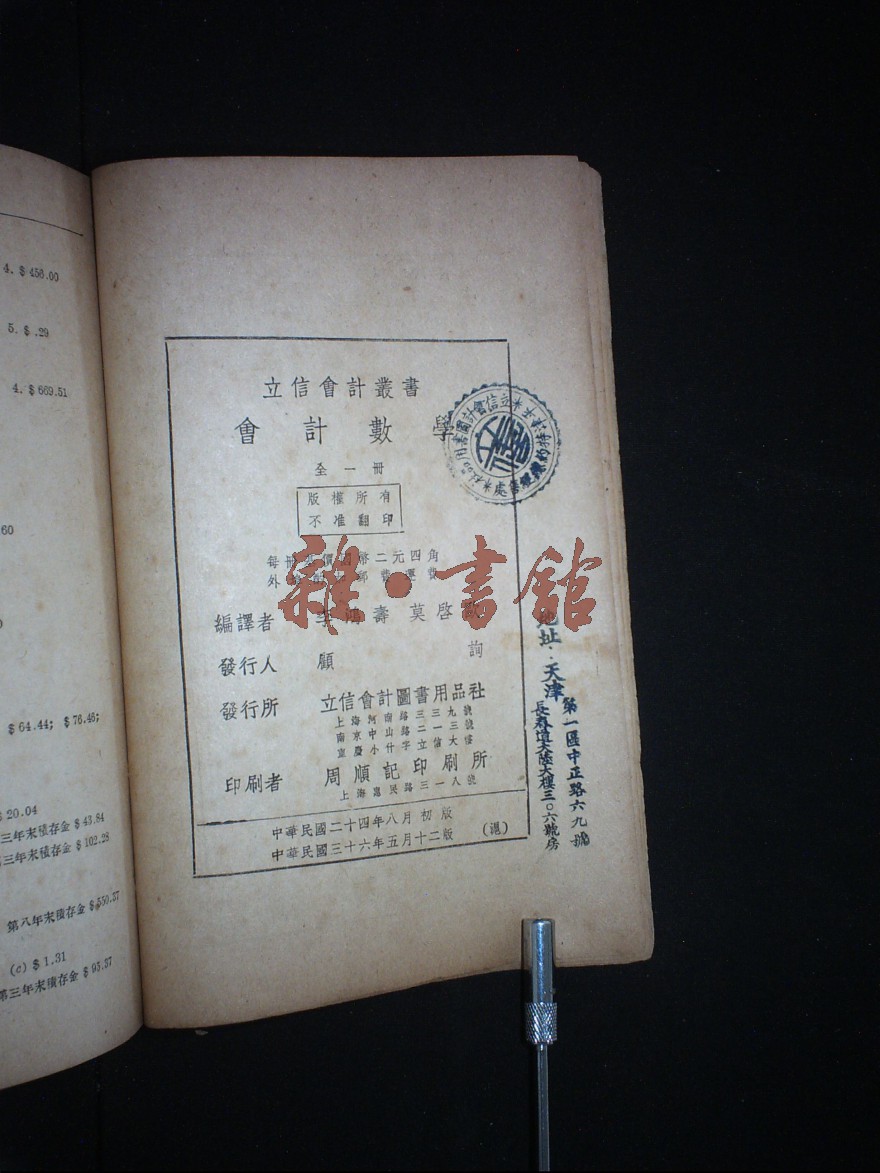 4. $ 456.00
5. $ .29
4. $ 669.51
60
$ 64.44; $ 76.46;
$ 20.04
三年末積存金 $ 43.84
三年末積存金 $ 102.28
第八年末積存金 $ 550.37
(c) $ 1.31
第三年末積存金 $ 95.37
立信會計叢書
會計數學
全一冊
版權所有
不准翻印
每冊 價國幣二元四角
外 郵費運費
編譯者 李鴻壽 莫啓歐
發行人 顧 詢
發行所 立信會計圖書用品社
上海河南路三三九號
南京中山路二一三號
重慶小什字立信大樓
印刷者 周順記印刷所
上海惠民路三一八號
中華民國二十四年八月初版
中華民國三十六年五月十二版 (滬)
雜·書館
地址·天津
第一區中正路六九號
長春道大陸大樓三〇六號房